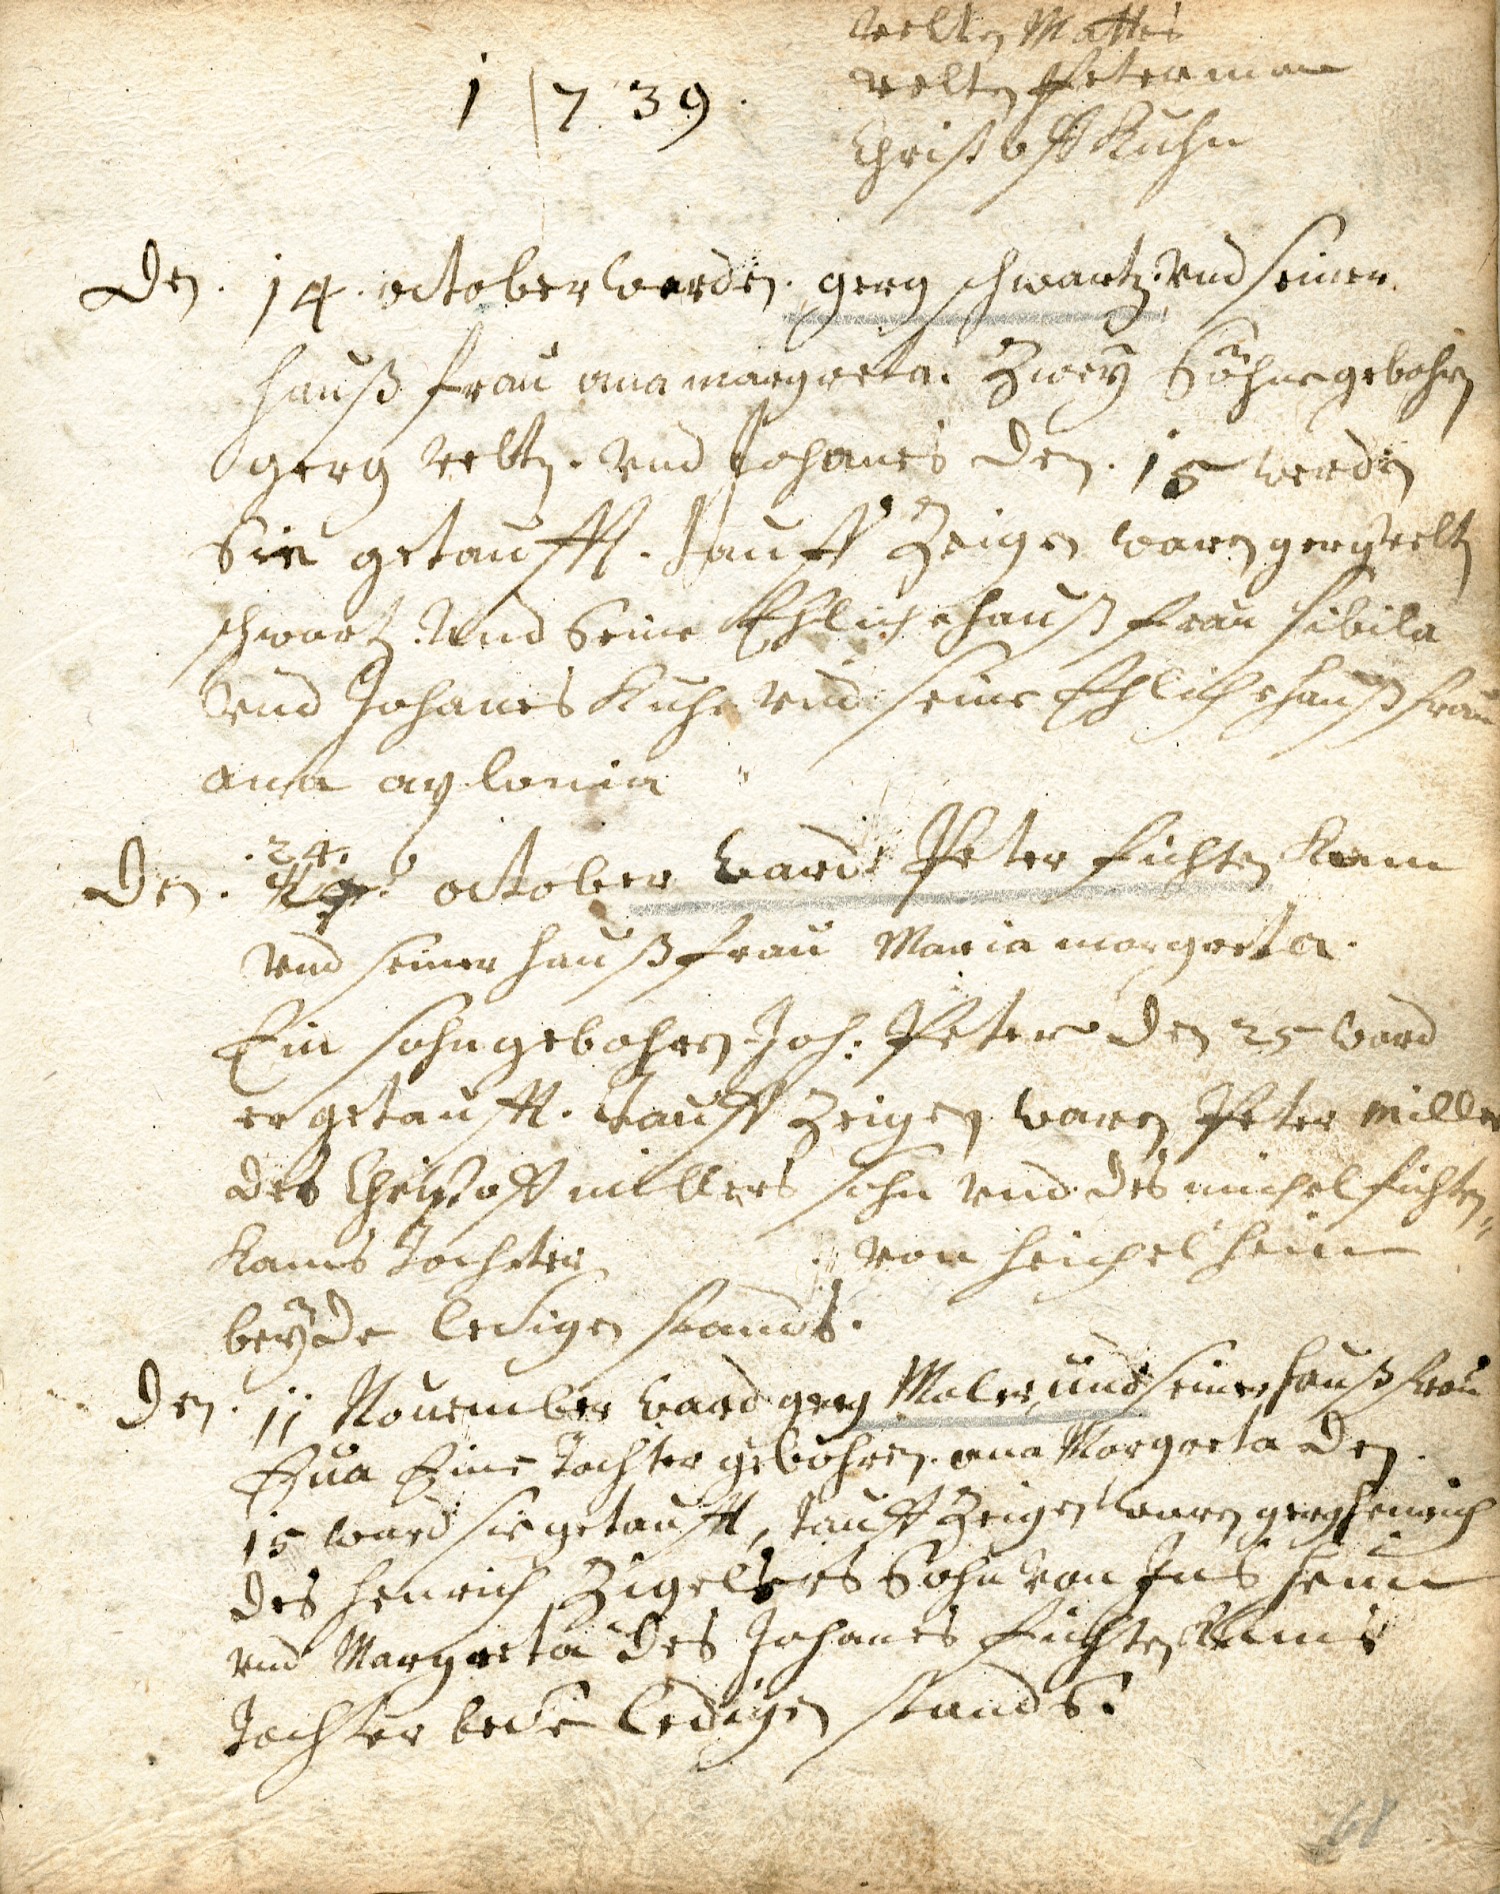 Velten Mattes
1739.
Velten Peterman
Christoff Kuhn
Den. 14. october warden. gerg schwartz. und seiner.
hauß frau ana margreta. Zwey Söhne gebohren
gerg velten. und Johanes den. 15 werden
Sie getaufft. Tauff Zeigen waren gerg velten
schwartz. und Seine Ehliche hauß frau sibila
und Johanes Kuhn und seine Ehliche hauß frau
ana aplonia
24.
Den. october ward Peter fichten Kam
und seiner hauß frau Maria margreta.
Ein sohn gebohren Joh: Peter den 25 ward
er getaufft. Tauff Zeigen waren Peter miller
des Christoff millers sohn und des michel fichten=
Kams Tochter von heichelheim
beyde ledigen stands.
Den. 11 November ward gerg Maler und seiner hauß frau
Eva Eine Tochter gebohren. ana Margreta den.
15 ward sie getaufft, Tauff Zeigen waren gerg henrich
des henrich Zigelers Sohn von Insheim
und Margreta des Johanes fichten Kams
Tochter bede ledigen stands.
68